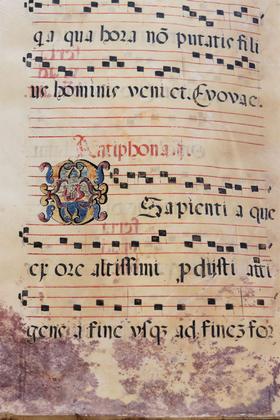 qa qua hora nõ putatis fili
us hominis veniet. Evovae.
Antiphona.
O Sapienti a que
ex ore altissimi pdisti atti
gens a fine vsqz ad finez for